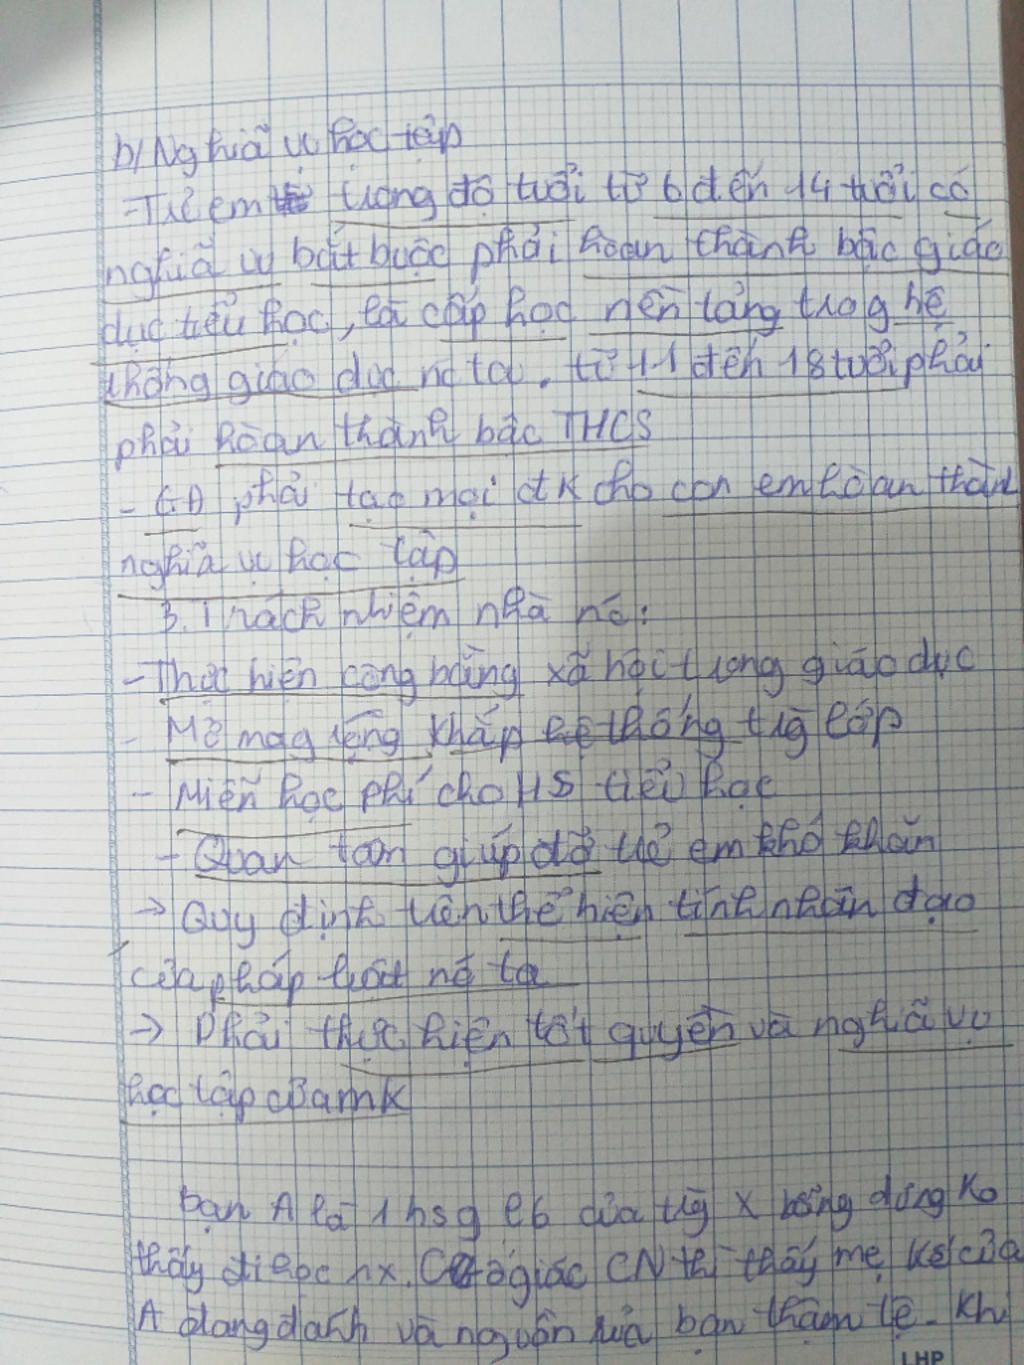 b/ Nghiã vụ học tập
-Trẻ em trong độ tuổi từ 6 đến 14 tuổi có
nghiã vụ bắt buộc phải hoàn thành bậc giáo
dục tiểu học, là cấp học nền tảng trog hệ
thống giáo dục nc ta. từ 11 đến 18 tuổi phải
phải hoàn thành bậc THCS
- GĐ phải tạo mọi đk cho con em hoàn thành
nghiã vụ học tập
3. Trách nhiệm nhà nc:
-Thực hiện công bằng xã hội trong giáo dục
- Mở mag rộng khắp hệ thống trg lớp
- Miễn học phí cho HS tiểu học
- Quan tâm giúp đỡ trẻ em khó khăn
-> Quy định trên thể hiện tính nhân đạo
của pháp luật nc ta
-> Phải thực hiện tốt quyền và nghiã vụ
học tập của mk
bạn A là 1 hsg l6 của trg X bỗng dưng ko
thấy đi học nx. Cô giáo CN thì thấy mẹ kế của
A đang đánh và nguồn rủa bạn thậm tệ. Khi
LHP